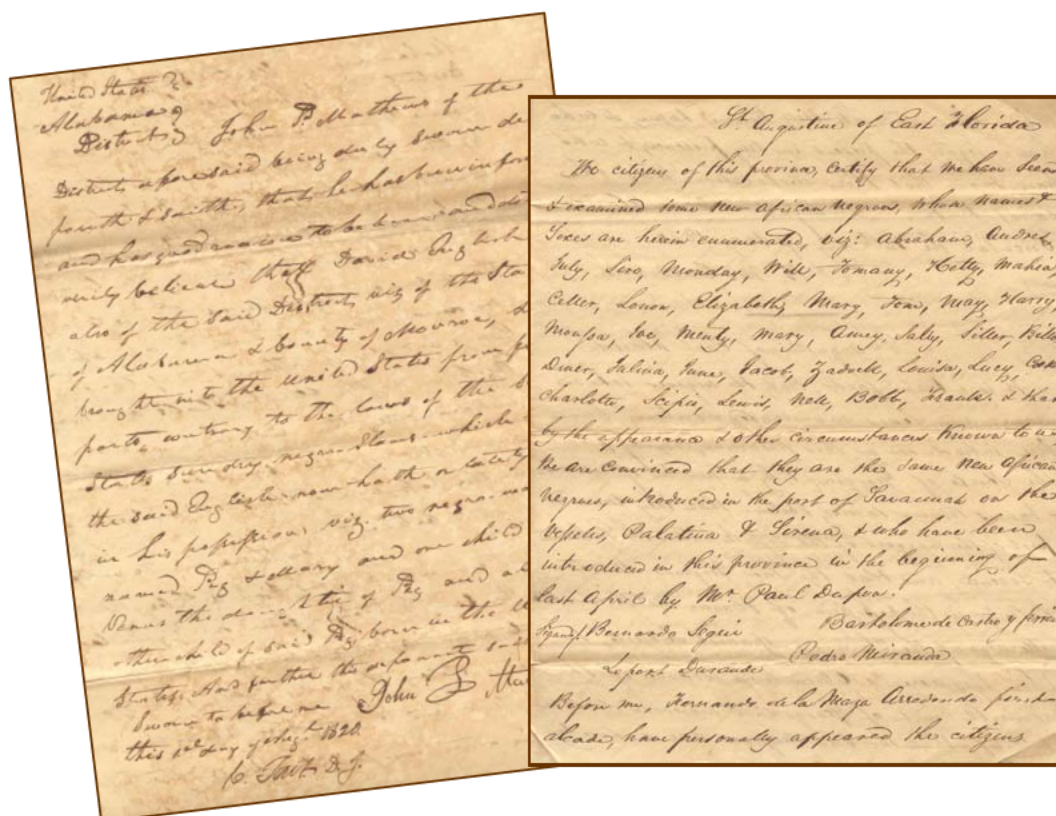 United States
Alabama
District
John P. Mathews of the
District aforesaid being duly sworn de
poseth & saith, that he has been infor
and has good reason to believe and do
verily believe that David English
also of the said District, viz of the Sta
of Alabama & County of Monroe,
brought into the United States from
ports, contrary to the laws of the
States sundry negro Slaves which
the said English now hath or lately
in his possession, viz. two negro
named Peg & Mary and one child
Venus the daughter of Peg and
other child of said Peg born in the
States, And further this deponent
Sworn to before me John P Mat
this day of 1820
C. Tait D. J.
St. Augustine of East Florida
We citizens of this province, certify that we have seen
& examined some new african negroes, whose names &
Sexes are herein enumerated, viz: Abraham, Andrew
July, Siro, Monday, Will, Tomany, Hetty, Mahia
Celler, Lonon, Elizabeth, Mary, Tom, May, Harry
Monssa, Joe, Menty, Mary, Amey, Saly, Siller, Bill
Diner, Salina, June, Jacob, Zadock, Louisa, Lucy,
Charlotte, Scipio, Lewis, Nell, Bobb, Frank. & that
by the appearance & other circumstances known to u
We are convinced that they are the same new African
Negroes, introduced in the port of Savannah on the
Vessels, Palatina & Sirena, & who have been
introduced in this province in the beginning of
last April by Mr. Paul Dupon.
Signed Bernardo Segui Bartolome de Castro y Ferre
Pedro Miranda
Before me, Fernando de la Maza Arredondo first
alcade, have personally appeared the citizens